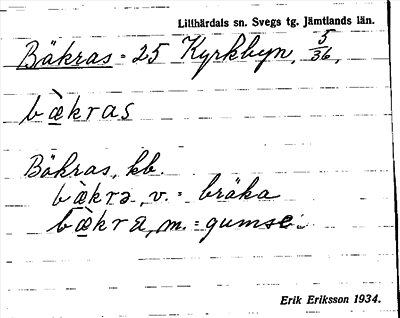 Lillhärdals sn. Svegs tg. Jämtlands län.
Bäkras = 25 Kyrkbyn, 5/36,
bæ̀kras
Bäkras, kb.
bæ̀krə, v. = bräka
bæ̀kra, m. = gumse.
Erik Eriksson 1934.